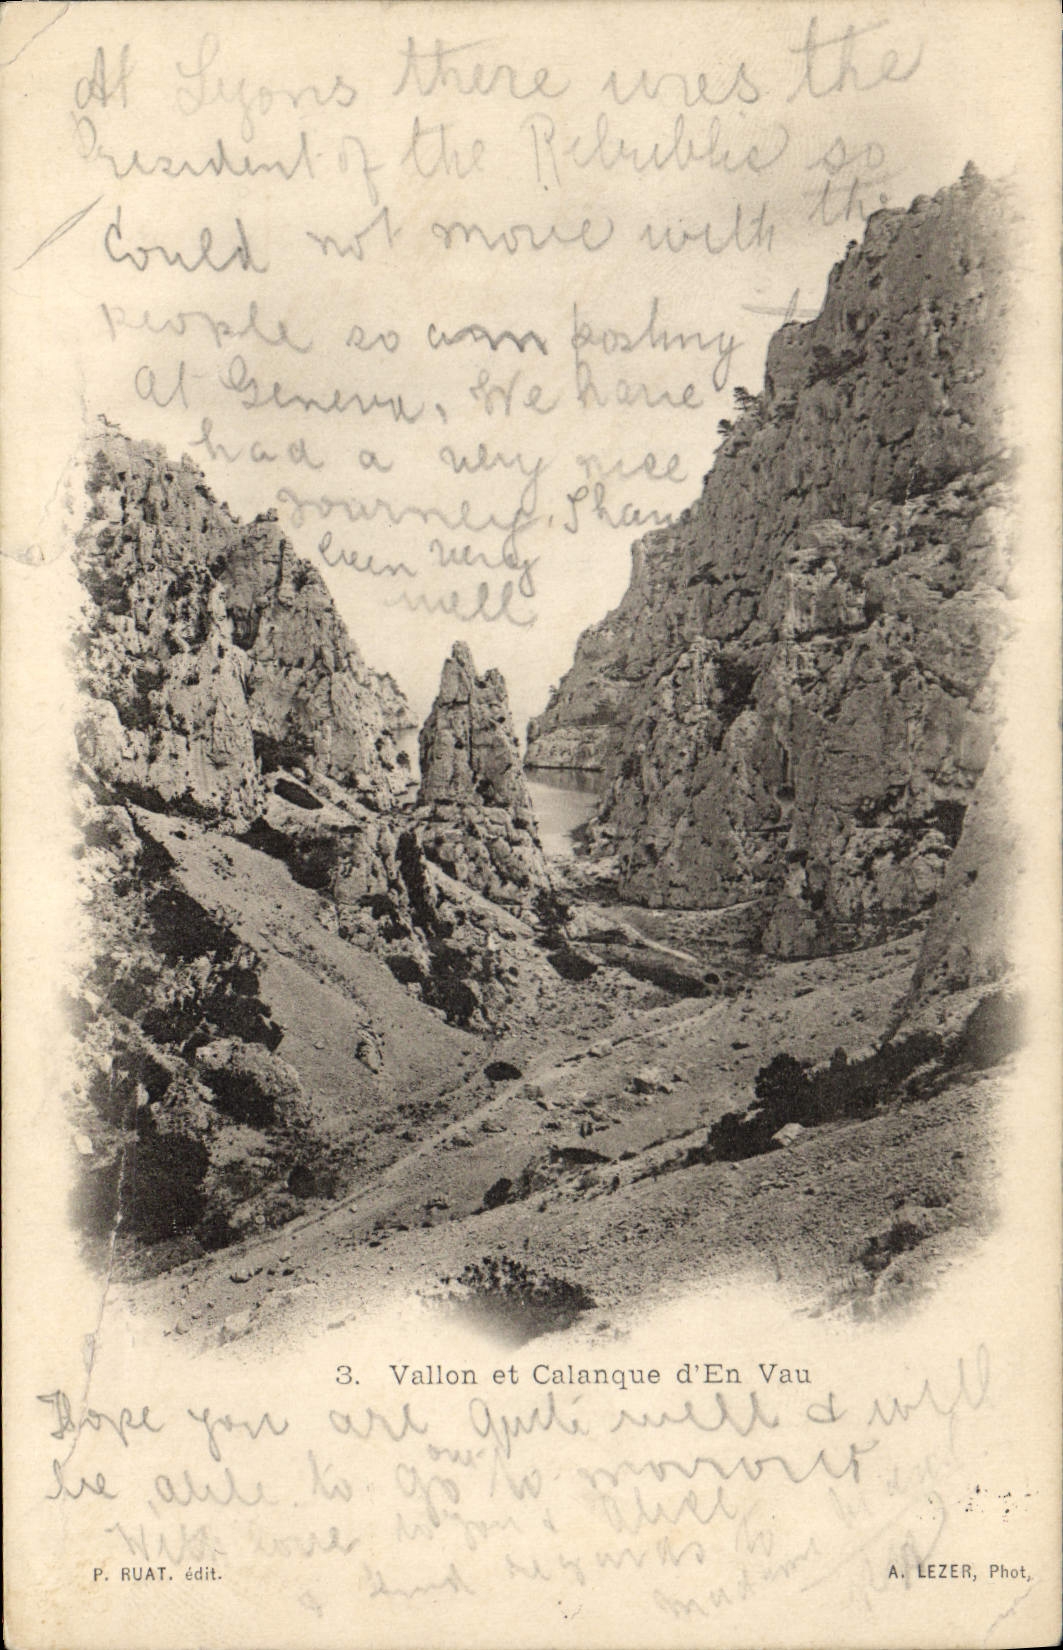 At Lyons there wres the
President of the Rebublic so
Could not move with the
people so am posting
At Geneva, We have
had a very nice
Journey. I have
been very
well
3. Vallon et Calanque d'En Vau
Hope you are Quite well & will
be able to go out to morrow
With love to you & Alice
& kind regards to
Madame
P. RUAT. édit.
A. LEZER, Phot,